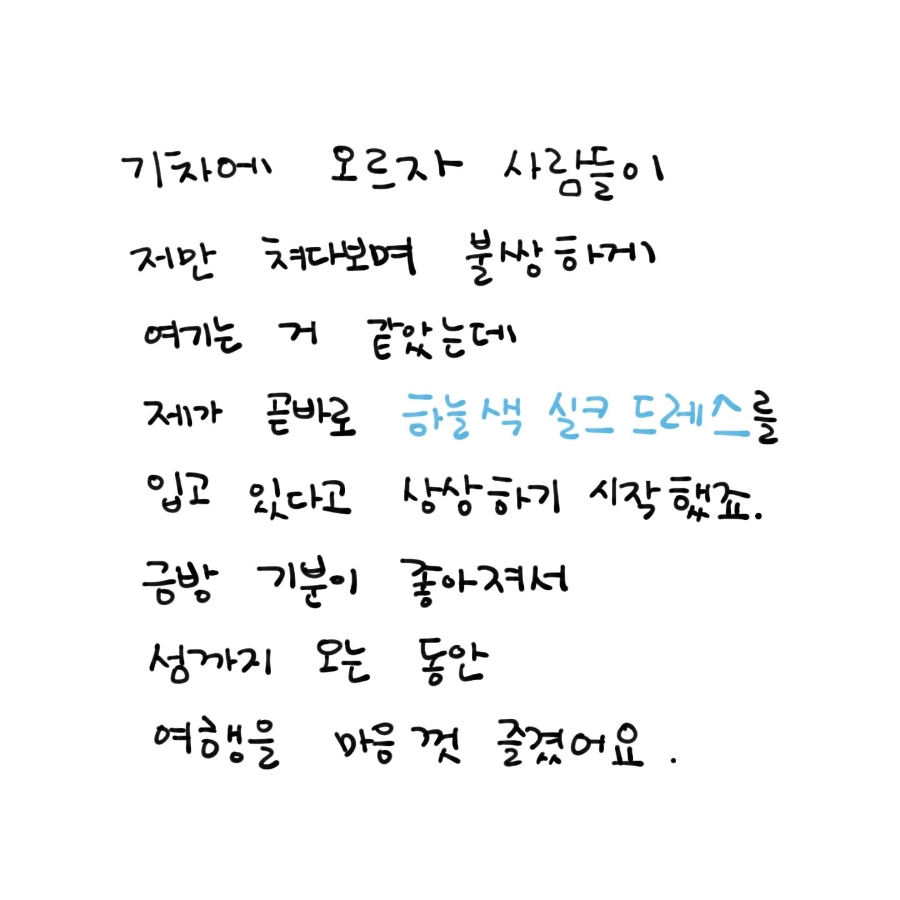 기차에 오르자 사람들이
저만 쳐다보며 불쌍하게
여기는 거 같았는데
제가 곧바로 하늘색 실크 드레스를
입고 있다고 상상하기 시작했죠.
금방 기분이 좋아져서
섬까지 오는 동안
여행을 마음껏 즐겼어요.